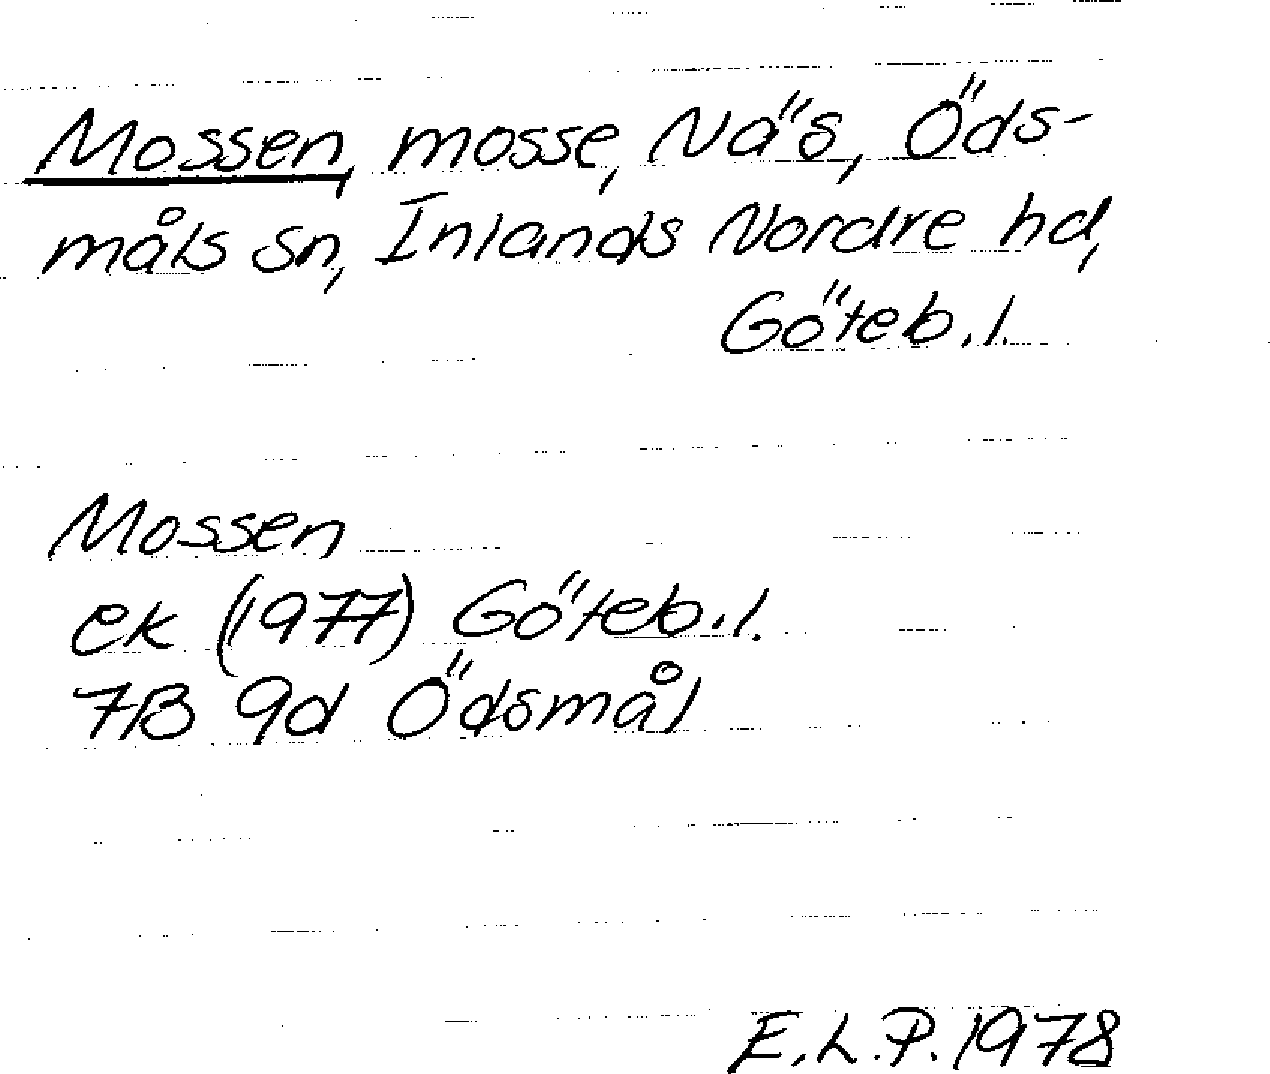 Mossen, mosse, Näs, Öds-
måls sn, Inlands Nordre hd,
Göteb.l.
Mossen
ek (1977) Göteb.l.
7B 9d Ödsmål
E.L.P. 1978